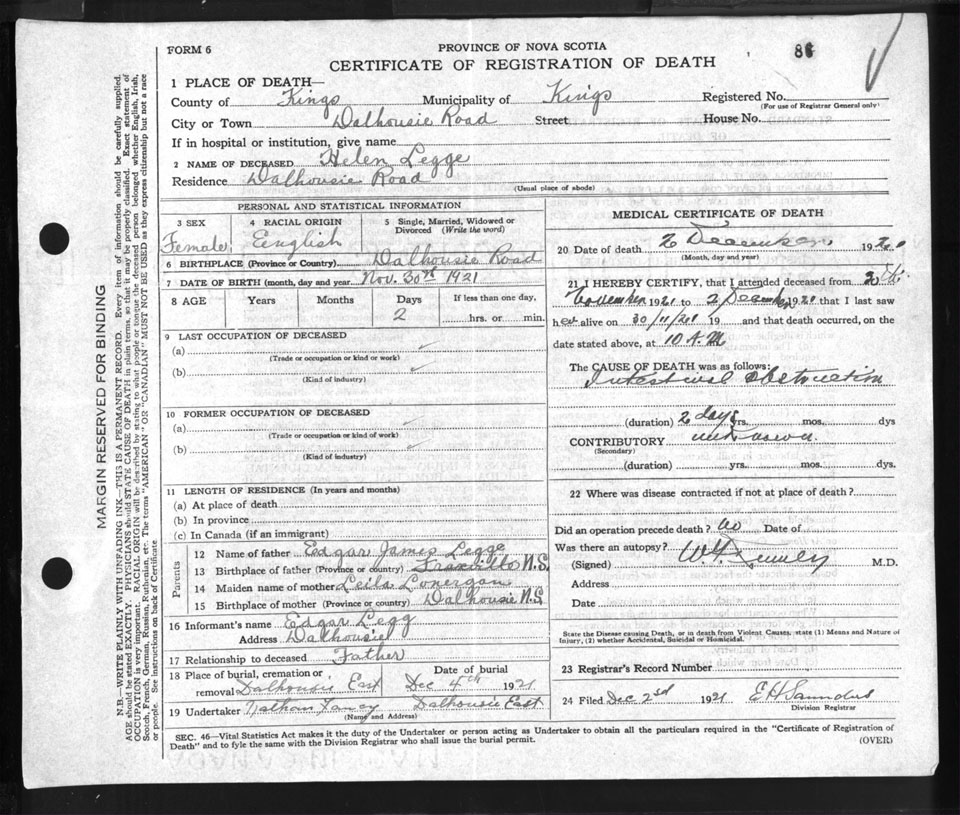 FORM 6
PROVINCE OF NOVA SCOTIA
86
CERTIFICATE OF REGISTRATION OF DEATH
1 PLACE OF DEATH—
County of Kings Municipality of Kings Registered No.
(For use of Registrar General only)
City or Town Dalhousie Road Street House No.
If in hospital or institution, give name
2 NAME OF DECEASED Helen Legge
Residence Dalhousie Road
(Usual place of abode)
PERSONAL AND STATISTICAL INFORMATION
3 SEX 4 RACIAL ORIGIN 5 Single, Married, Widowed or
Divorced (Write the word)
Female English
6 BIRTHPLACE (Province or Country) Dalhousie Road
7 DATE OF BIRTH (month, day and year Nov. 30th 1921
8 AGE Years Months Days If less than one day,
2 hrs. or min.
9 LAST OCCUPATION OF DECEASED
(a)
(Trade or occupation or kind or work)
(b)
(Kind of industry)
10 FORMER OCCUPATION OF DECEASED
(a)
(Trade or occupation or kind of work)
(b)
(Kind of industry)
11 LENGTH OF RESIDENCE (In years and months)
(a) At place of death
(b) In province
(c) In Canada (if an immigrant)
Parents
12 Name of father Edgar James Legge
13 Birthplace of father (Province or country) N.S.
14 Maiden name of mother Leila Lonergan
15 Birthplace of mother (Province or country) Dalhousie N.S
16 Informant's name Edgar Legg
Address Dalhousie
17 Relationship to deceased Father
18 Place of burial, cremation or Date of burial
removal Dalhousie East Dec 4th 1921
19 Undertaker Nathan Dalhousie East
(Name and Address)
MEDICAL CERTIFICATE OF DEATH
20 Date of death 2 December 192
(Month, day and year)
21 I HEREBY CERTIFY, that I attended deceased from
November 1921 to 2 December 192 that I last saw
her alive on 30/11/21 19 and that death occurred, on the
date stated above, at 10 A.M
The CAUSE OF DEATH was as follows:
Intestinal obstruction
(duration) 2 days yrs. mos. dys
CONTRIBUTORY unknown
(Secondary)
(duration) yrs. mos. dys.
22 Where was disease contracted if not at place of death?
Did an operation precede death? no Date of
Was there an autopsy?
(Signed) M.D.
Address
Date
State the Disease causing Death, or in death from Violent Causes, state (1) Means and Nature of
Injury, (2) whether Accidental, Suicidal or Homicidal.
23 Registrar's Record Number
24 Filed Dec 2nd 1921 E H Saunders
Division Registrar
SEC. 46—Vital Statistics Act makes it the duty of the Undertaker or person acting as Undertaker to obtain all the particulars required in the "Certificate of Registration of
Death" and to fyle the same with the Division Registrar who shall issue the burial permit.
(OVER)
MARGIN RESERVED FOR BINDING
N.B.—WRITE PLAINLY WITH UNFADING INK—THIS IS A PERMANENT RECORD. Every item of information should be carefully supplied.
AGE should be stated EXACTLY. PHYSICIANS should STATE CAUSE OF DEATH in plain terms, so that it may be properly classified. Exact statement of
OCCUPATION is very important. RACIAL ORIGIN will be described by stating to what people or tongue the deceased person belonged whether English, Irish,
Scotch, French, German, Russian, Ruthenian, etc. The terms "AMERICAN" OR "CANADIAN" MUST NOT BE USED as they express citizenship but not a race
or people. See instructions on back of Certificate